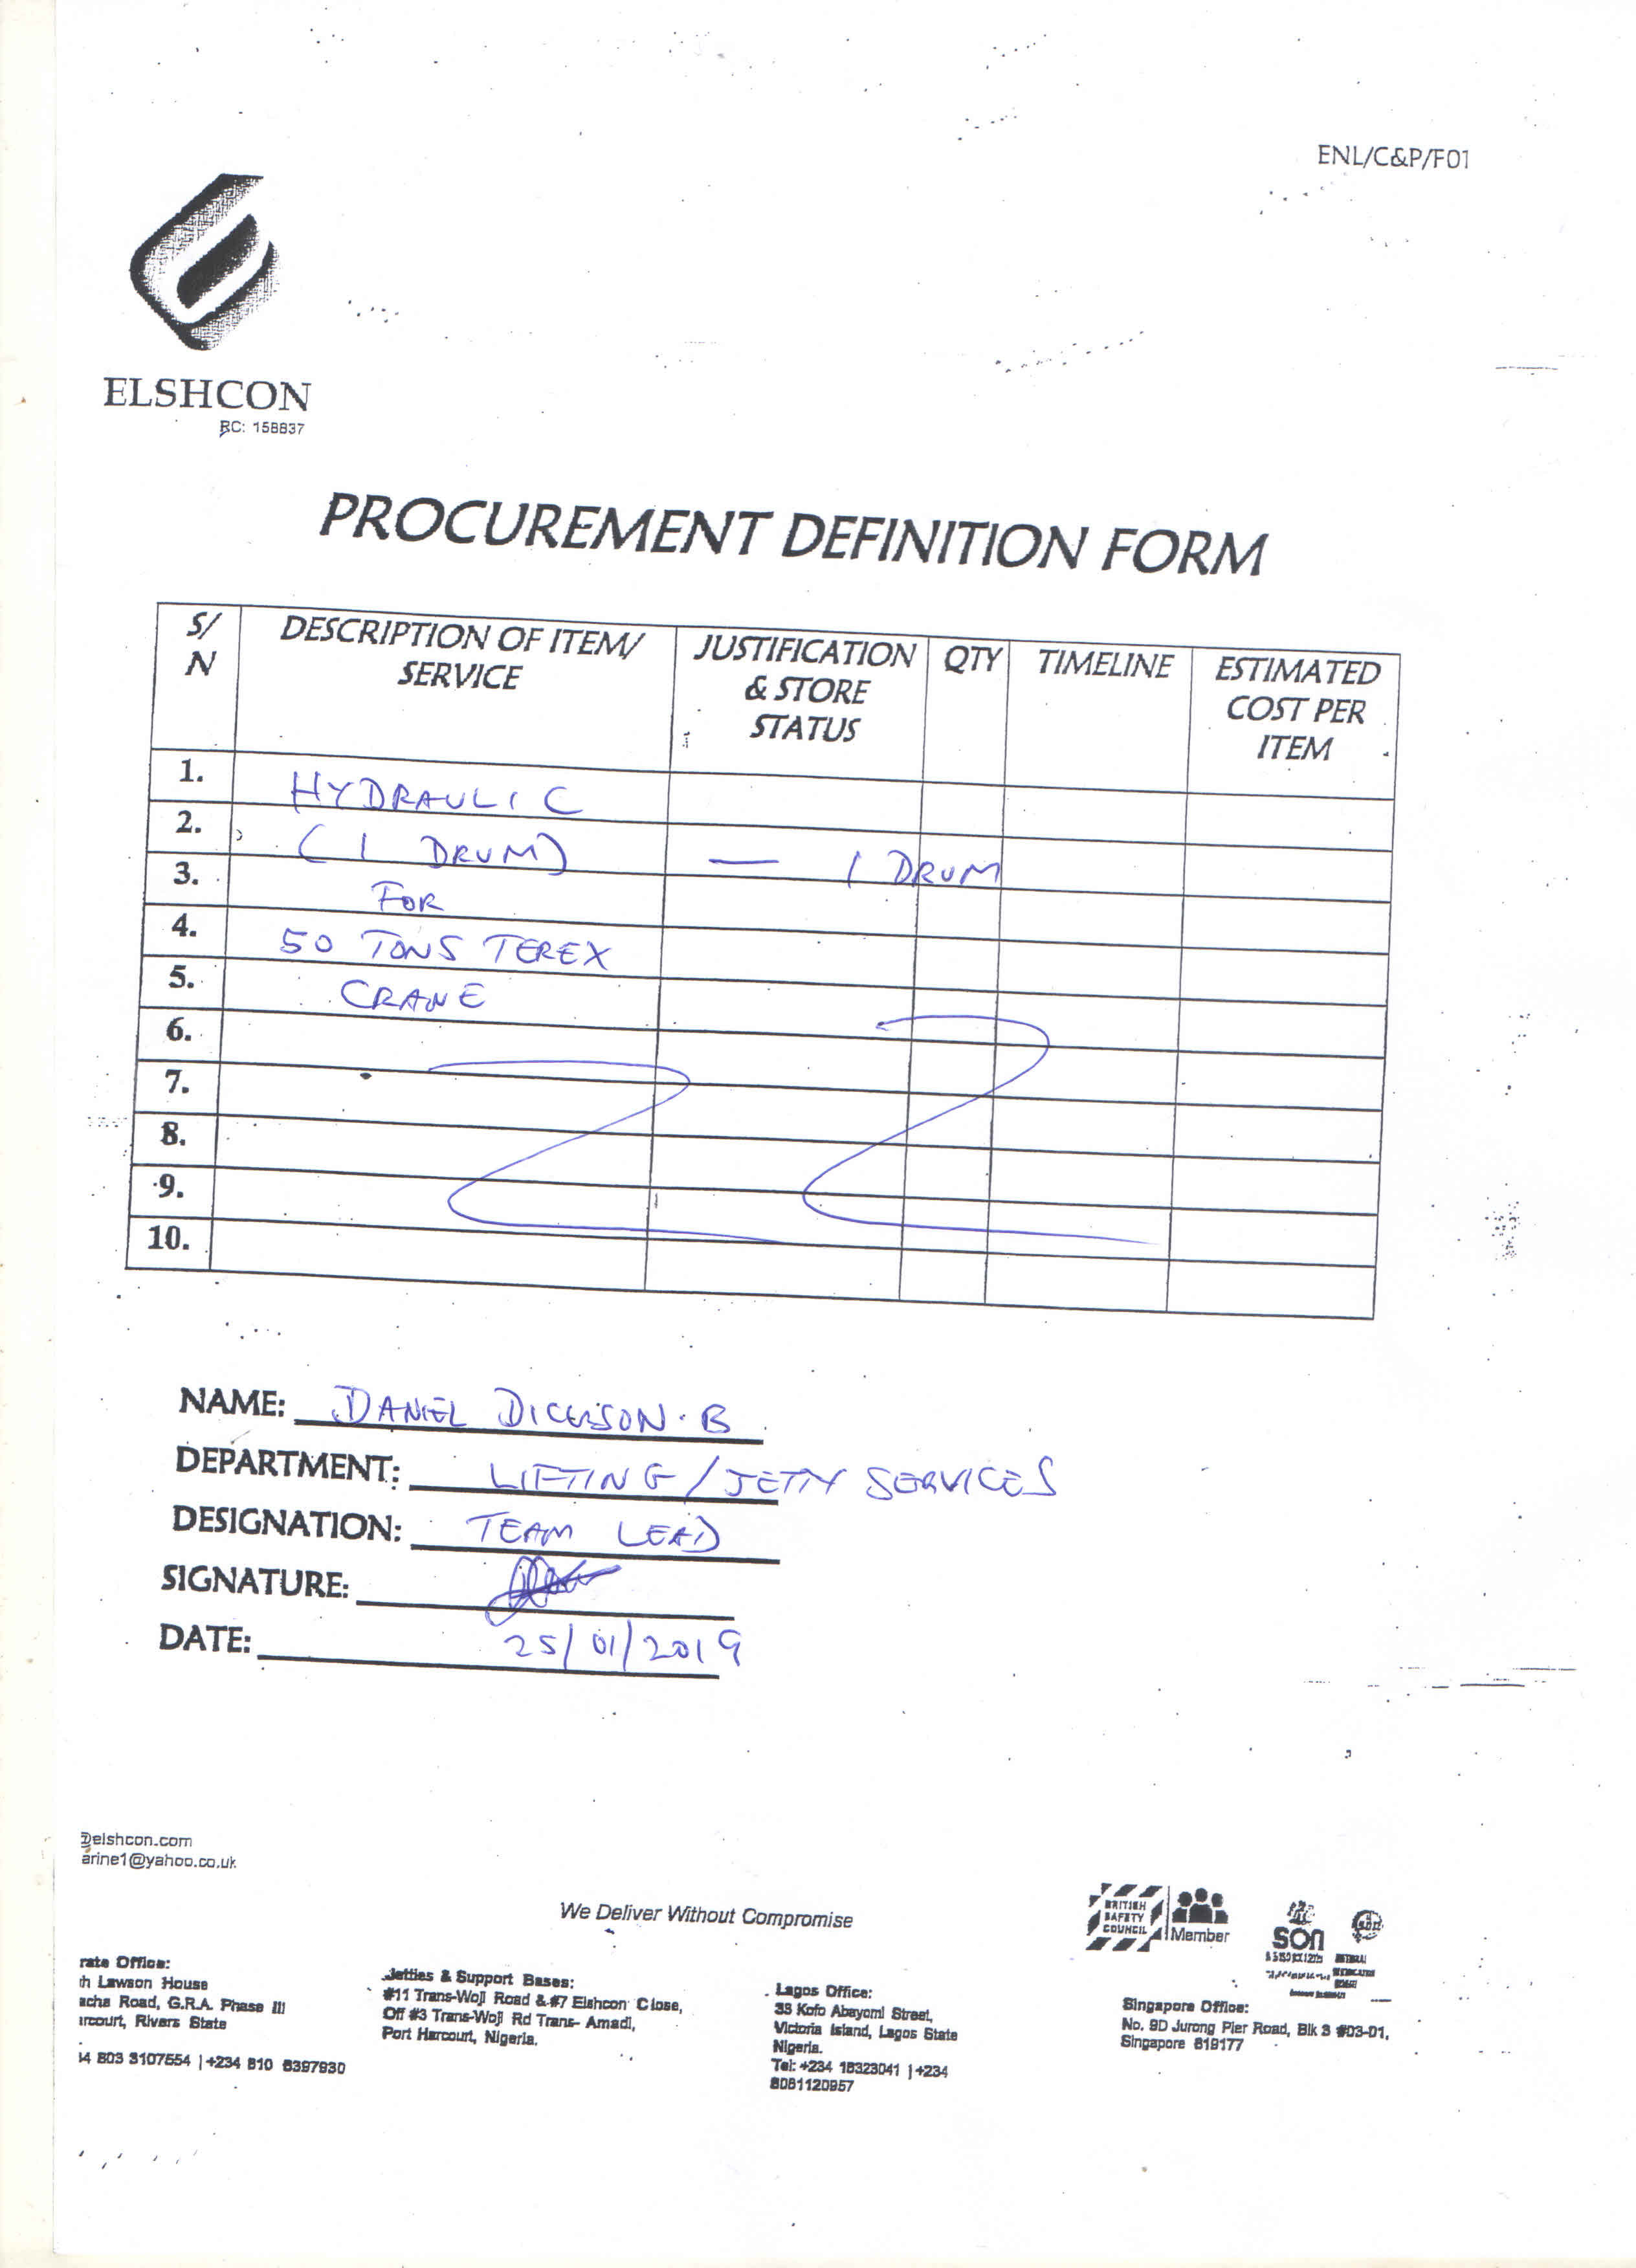 ENL/C&P/F01
ELSHCON
RC: 158837
PROCUREMENT DEFINITION FORM
S/N DESCRIPTION OF ITEM/ SERVICE JUSTIFICATION & STORE STATUS QTY TIMELINE ESTIMATED COST PER ITEM
1. HYDRAULIC
2. (1 DRUM) — 1 DRUM
3. FOR
4. 50 TONS TEREX
5. CRANE
6.
7.
8.
9.
10.
NAME: DANIEL DICKSON. B
DEPARTMENT: LIFTING/JETTY SERVICES
DESIGNATION: TEAM LEAD
SIGNATURE:
DATE: 25/01/2019
elshcon.com
arine1@yahoo.co.uk
We Deliver Without Compromise
BRITISH
SAFETY
COUNCIL
Member
SON
rate Office:
h Lawson House
acha Road, G.R.A. Phase III
rcourt, Rivers State
4 803 3107554 | +234 810 8397930
Jetties & Support Bases:
#11 Trans-Woji Road & #7 Elshcon Close,
Off #3 Trans-Woji Rd Trans- Amadi,
Port Harcourt, Nigeria.
Lagos Office:
33 Kofo Abayomi Street,
Victoria Island, Lagos State
Nigeria.
Tel: +234 18323041 | +234
8081120957
Singapore Office:
No. 9D Jurong Pier Road, Blk 3 #03-01,
Singapore 619177